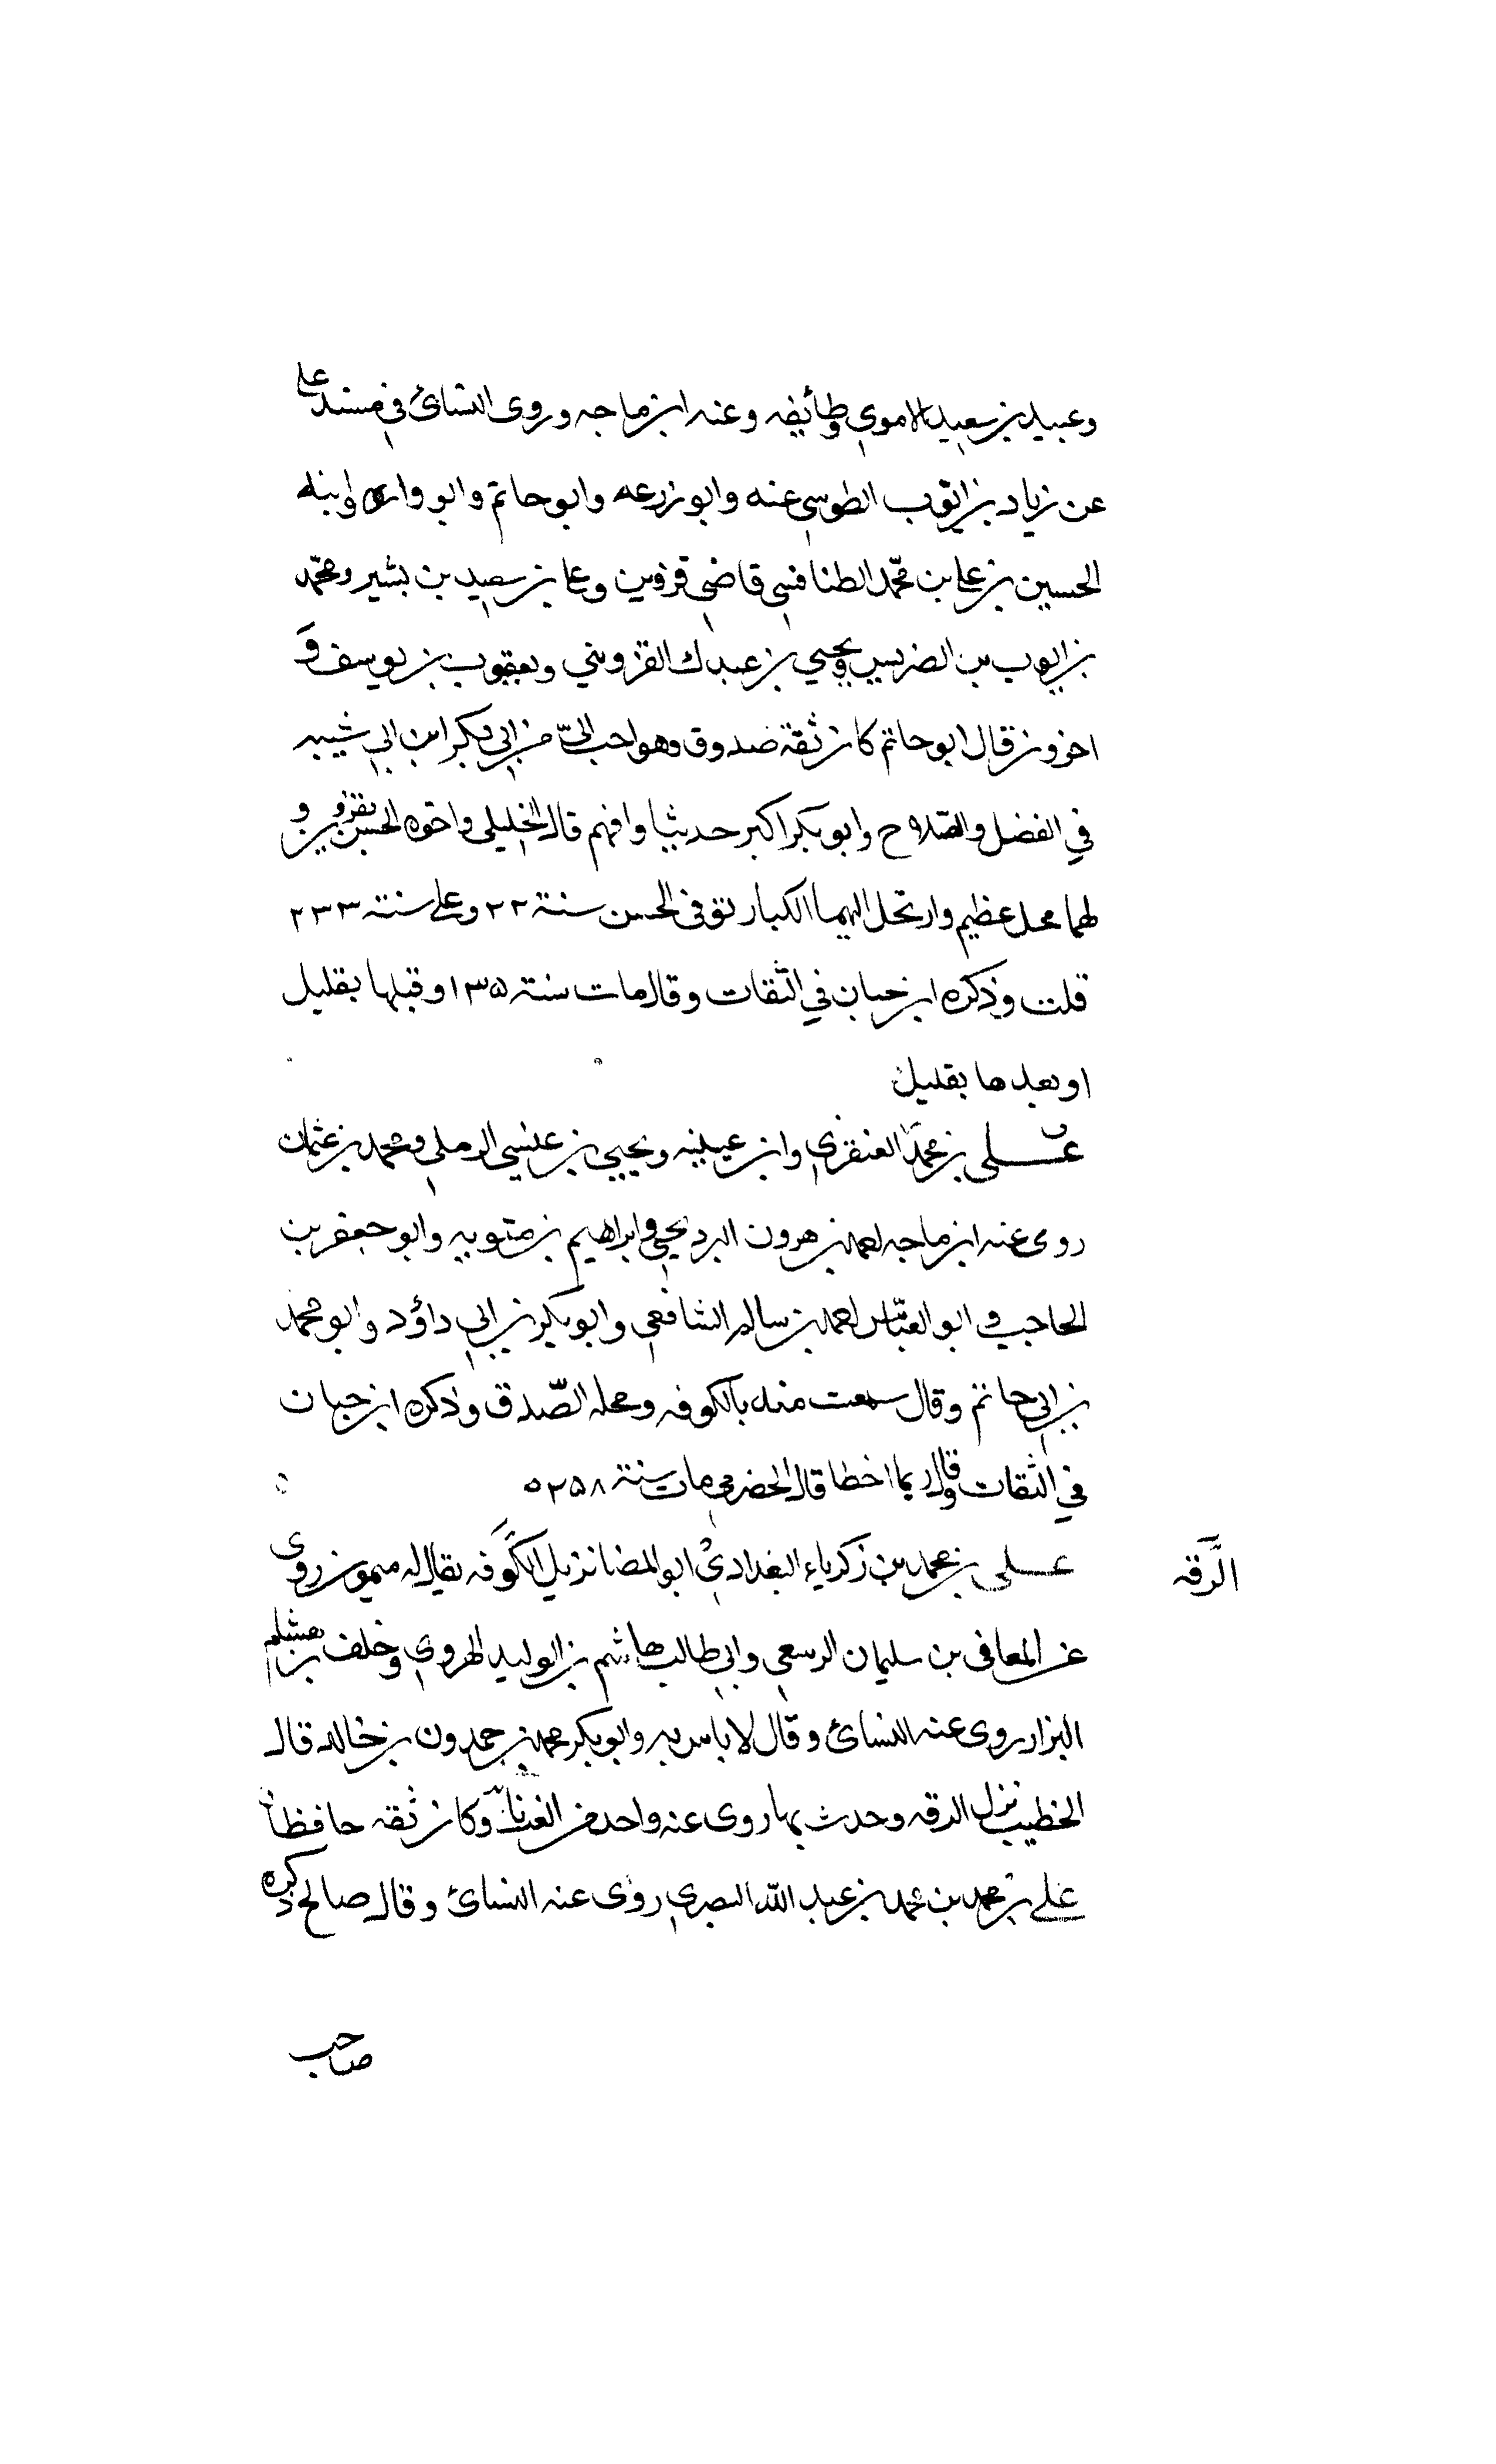 وعبيد بن سعيد الاموي وطائفه وعنه ابن ماجه وروى النسائ في مسند علي
عن زياد بن ايوب الطوسي عنه وابو زرعه وابو حاتم وابو واره وابنه
الحسين بن علي بن محمد الطنافسي قاضي قزوين وعلي بن سعيد بن بشير ومحمد
بن ايوب بن الضريس ويحيي بن عبدك القزويني ويعقوب بن يوسف و
اخرون قال ابو حاتم كان ثقة صدوق وهو احب اليّ من ابي بكر ابن ابي شيبه
في الفضل والصّلاح وابو بكر اكبر حديثا وافهم قال الخليلي واخوه الحسن بقزوين و
لهما محل عظيم وارتحل اليهما الكبار توفى الحسن سنة ٢٢ وعلي سنة ٢٣٣
قلت وذكره ابن حبان في الثّقات وقال مات سنة ١٣٥ وقبلها بقليل
او بعدها بقليل
علي بن محمد العنقزي وابن عيينه ويحيي بن عيسي الرملي ومحمد بن عثمان
روى عنه ابن ماجه احمد بن هرون البرديجي وابراهيم بن متويه وابو جعفر بن
الحاجب و ابو العبّاس احمد بن سالم الشافعي وابو بكر بن ابي داؤد وابو محمد
بن ابي حاتم وقال سمعت منه بالكوفه ومحله الصّدق وذكره ابن حبان
في الثقات وقال ربما اخطا قال الحضرمي مات سنة ٢٥٨
علي بن محمد بن زكرياء البغدادي ابو المضا نزيل الكوفه يقال له ميمون روى
الرّقه
عن المعافى بن سليمان الرسعي وابي طالب هاشم بن الوليد الهروي وخلف بن هشام
البزار روى عنه النسائ وقال لا باس به وابو بكر محمد بن حمدون بن خالد قال
الخطيب نزل الرقه وحدث بها روى عنه واحد من الغرباء وكان ثقه حافظا
علي بن محمد بن محمد بن عبد الله البصري روى عنه النسائ وقال صالح ذكره
صاحب